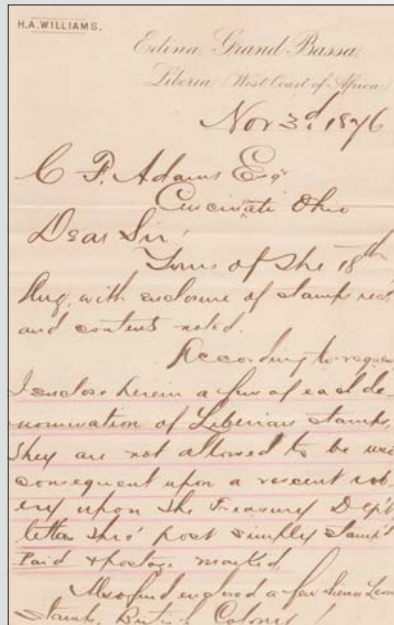 H.A.WILLIAMS.
Edina, Grand Bassa,
Liberia (West Coast of Africa)
Nov 3d. 1876
C. F. Adams Esq
Cincinnati Ohio
Dear Sir,
Yours of the 18th
Aug, with enclosure of stamps rec'd
and contents noted.
According to reques
I enclose herein a few of each de
nomination of Liberian stamps,
they are not allowed to be used
consequent upon a rescent rob
ery upon the Treasury Dep't
letters thro' post simply stamp'd
Paid & postage marked
Also find enclosed a few Sierra Leon
stamps, British Colony!